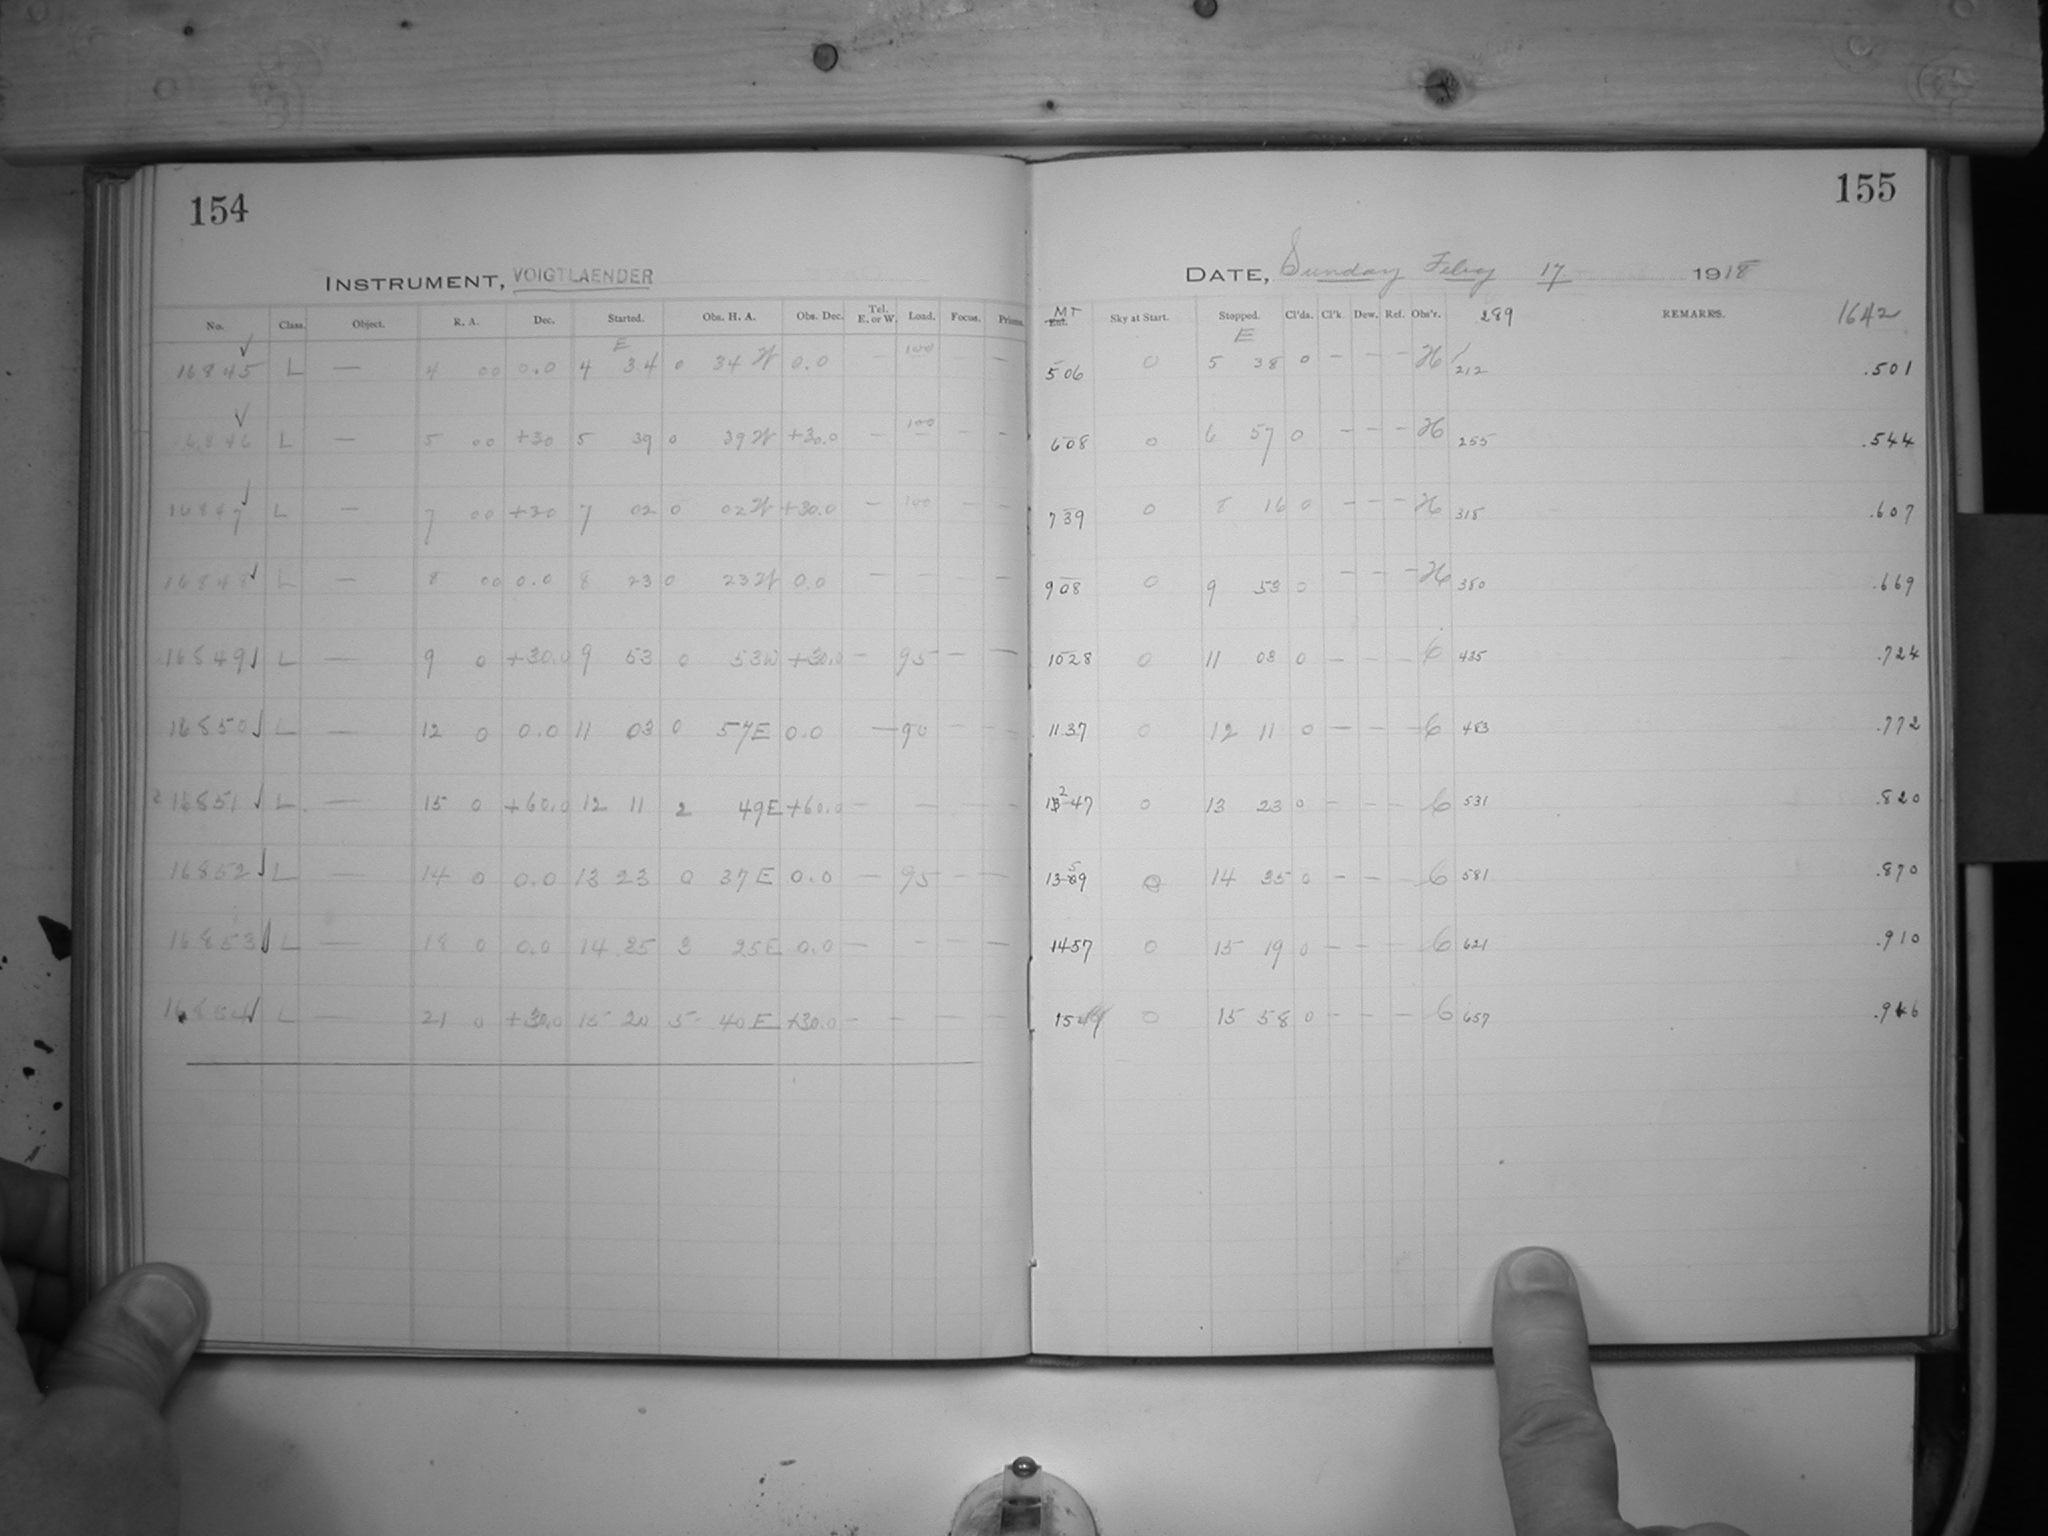 154
INSTRUMENT, VOIGTLAENDER
No. Class. Object. R. A. Dec. Started. Obs. H. A. Obs. Dec. Tel. E. or W. Load. Focus. Prisms.
E
16845 ✓ L — 4 00 0.0 4 34 0 34 W 0.0 — 100 — —
16846 ✓ L — 5 00 +30 5 39 0 39 W +30.0 — 100 — —
16847 ✓ L — 7 00 +30 7 02 0 02 W +30.0 — 100 — —
16848 ✓ L — 8 00 0.0 8 23 0 23 W 0.0 — — — —
16849 ✓ L — 9 0 +30.0 9 53 0 53 W +30.0 — 95 — —
16850 ✓ L — 12 0 0.0 11 03 0 57 E 0.0 — 90 — —
16851 ✓ L — 15 0 +60.0 12 11 2 49 E +60.0 — — —
16852 ✓ L — 14 0 0.0 13 23 0 37 E 0.0 — 95 — —
16853 ✓ L — 18 0 0.0 14 35 3 25 E 0.0 — — — —
16854 ✓ L — 21 0 +30.0 15 20 5 40 E +30.0 — — — —
155
DATE, Sunday Feby 17 1918
MT Sky at Start. Stopped. Cl'ds. Cl'k. Dew. Ref. Obs'r. 289 REMARKS. 1642
E
5 06 0 5 38 0 — — — H 212 .501
6 08 0 6 57 0 — — — H 255 .544
7 39 0 8 16 0 — — — H 318 .607
9 08 0 9 53 0 — — — H 380 .669
10 28 0 11 03 0 — — — 6 435 .724
11 37 0 12 11 0 — — — 6 483 .772
12 47 0 13 23 0 — — — 6 531 .820
13 59 0 14 35 0 — — — 6 581 .870
14 57 0 15 19 0 — — — 6 621 .910
15 0 15 58 0 — — — 6 657 .946